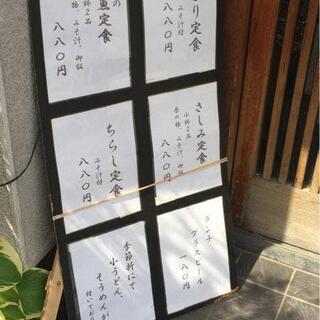 り定食
みそ汁付
八八〇円
の
魚定食
小鉢2品
香の物、みそ汁、御飯
八八〇円
さしみ定食
小鉢2品
香の物、みそ汁、御飯
八八〇円
ちらし定食
みそ汁付
八八〇円
ランチ
グラスビール
一八〇円
季節折にて
小うどん、
そうめんが
付いており